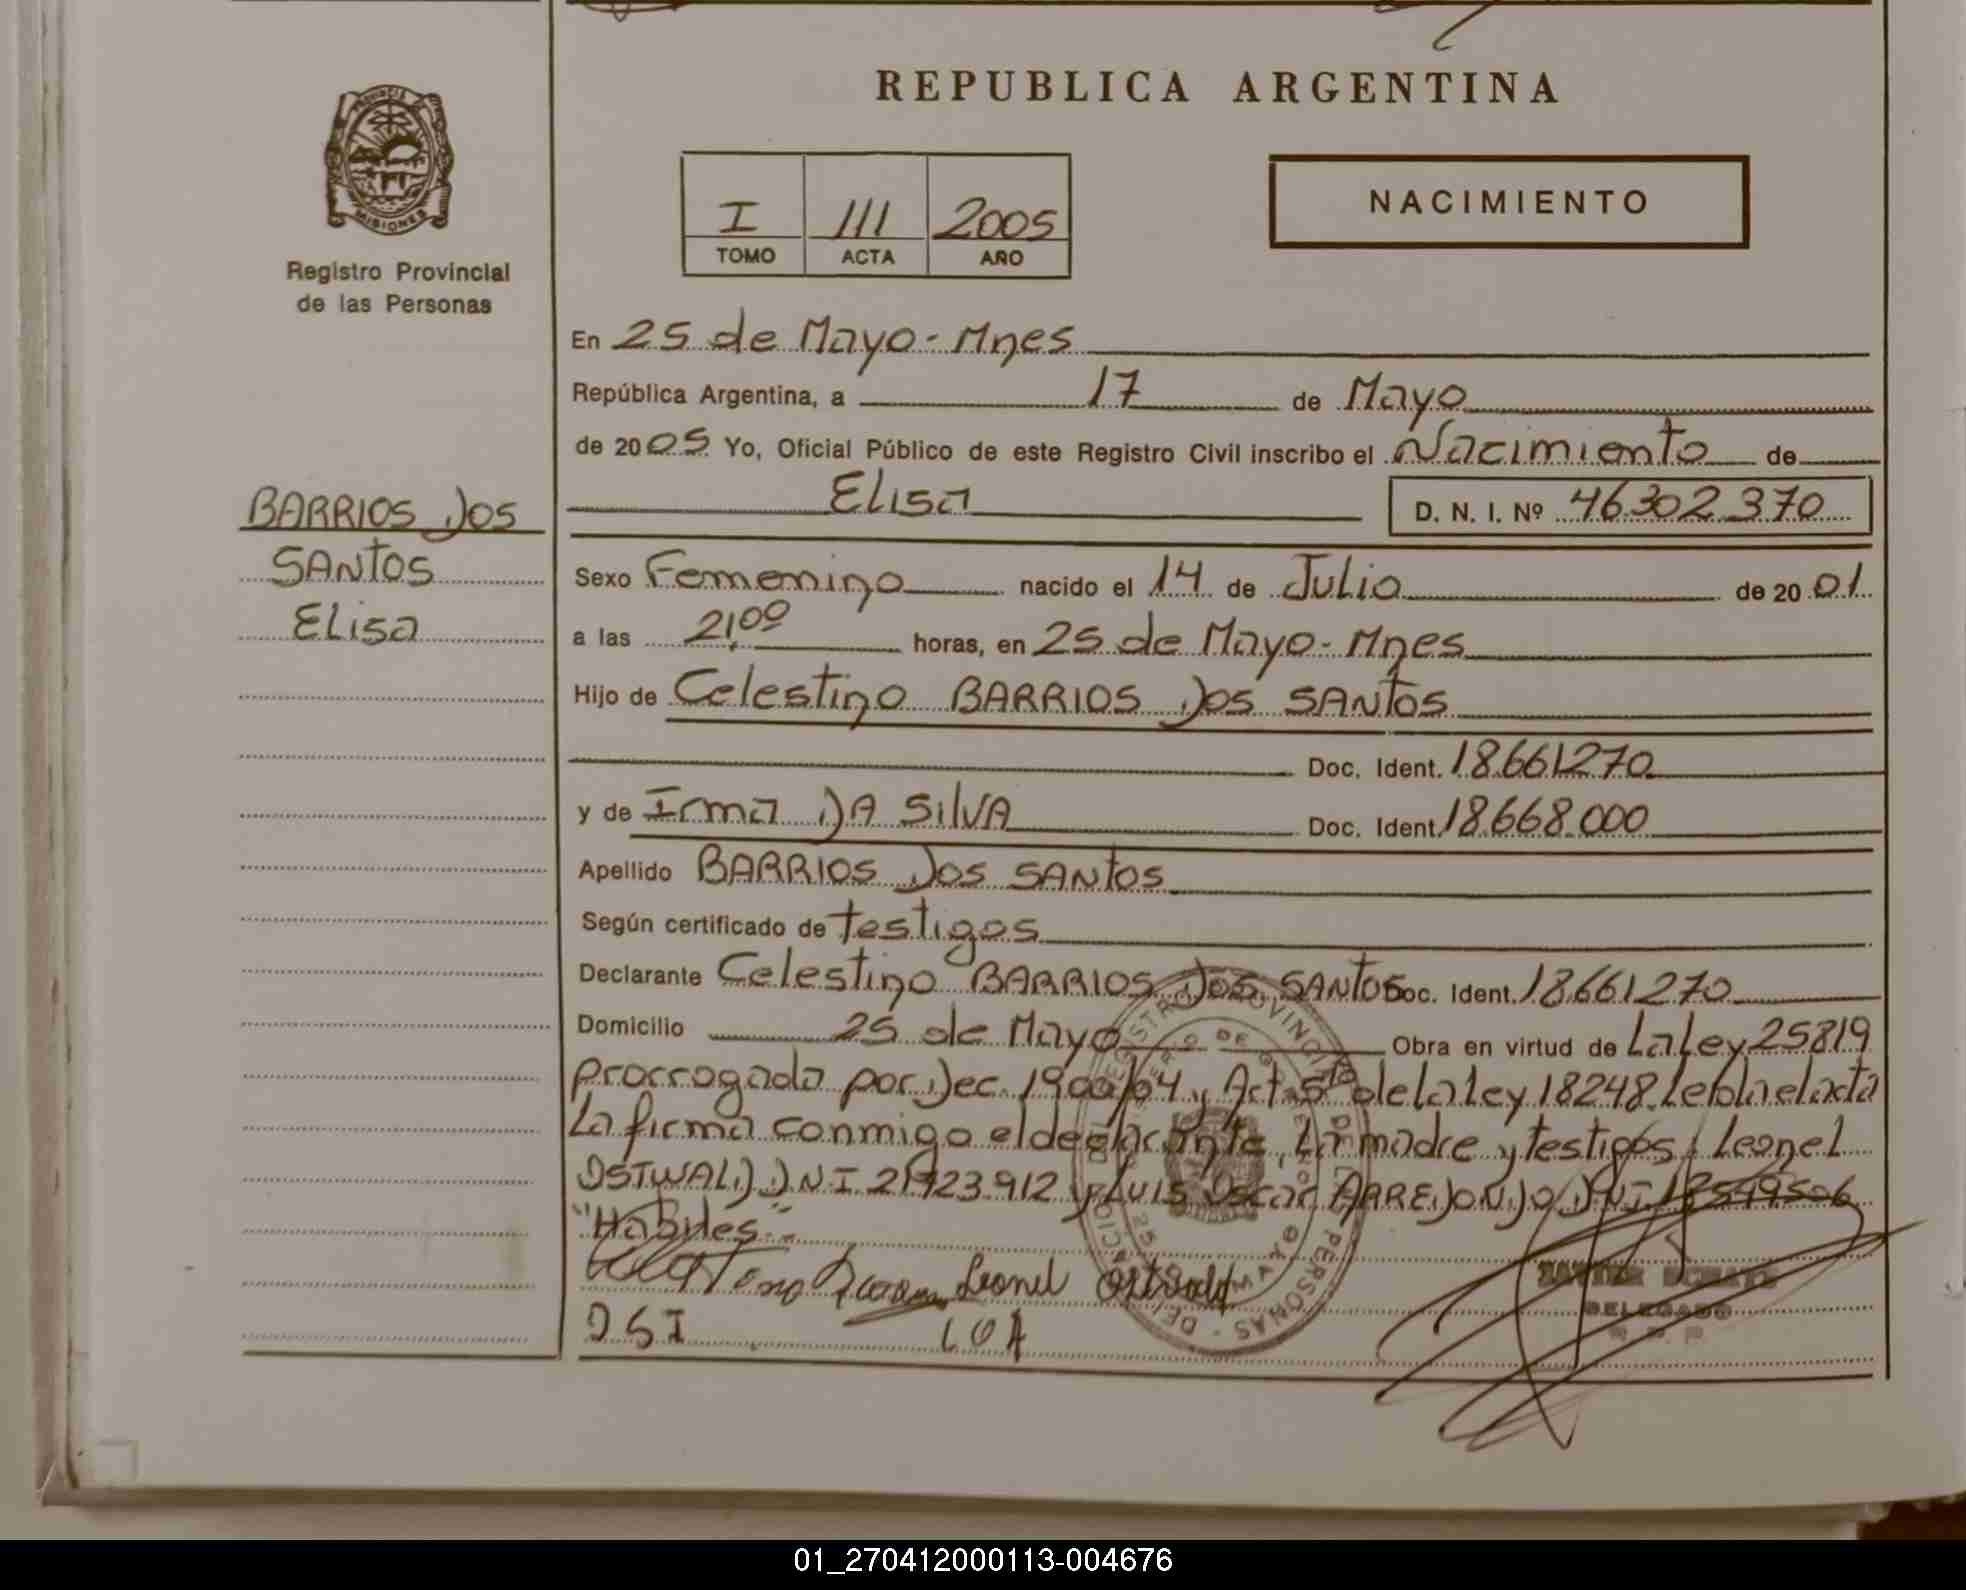 REPUBLICA ARGENTINA
PROVINCIA
MISIONES
Registro Provincial
de las Personas
I 111 2005
TOMO ACTA AÑO
NACIMIENTO
En 25 de Mayo - Mnes
República Argentina, a 17 de Mayo
de 2005 Yo, Oficial Público de este Registro Civil inscribo el Nacimiento de
Elisa D. N. I. Nº 46.302.370
BARRIOS DOS
SANTOS
Elisa
Sexo Femenino nacido el 14 de Julio de 2001
a las 21,00 horas, en 25 de Mayo - Mnes
Hijo de Celestino BARRIOS DOS SANTOS
Doc. Ident. 18.661.270
y de Irma DA SILVA Doc. Ident. 18.668.000
Apellido BARRIOS DOS SANTOS
Según certificado de testigos
Declarante Celestino BARRIOS DOS SANTOS Doc. Ident. 18.661.270
Domicilio 25 de Mayo Obra en virtud de La Ley 25819
prorrogada por Dec. 1900/04 y Art. 5º de la ley 18248. Leída el acta
La firma conmigo el declarante, La madre y testigos Leonel
OSTWALD DNI 21723912 y LUIS Oscar ARREDONDO DNI
"Habiles"
Leonel Ostwald
DELEGADO
R. P. P.
01_270412000113-004676